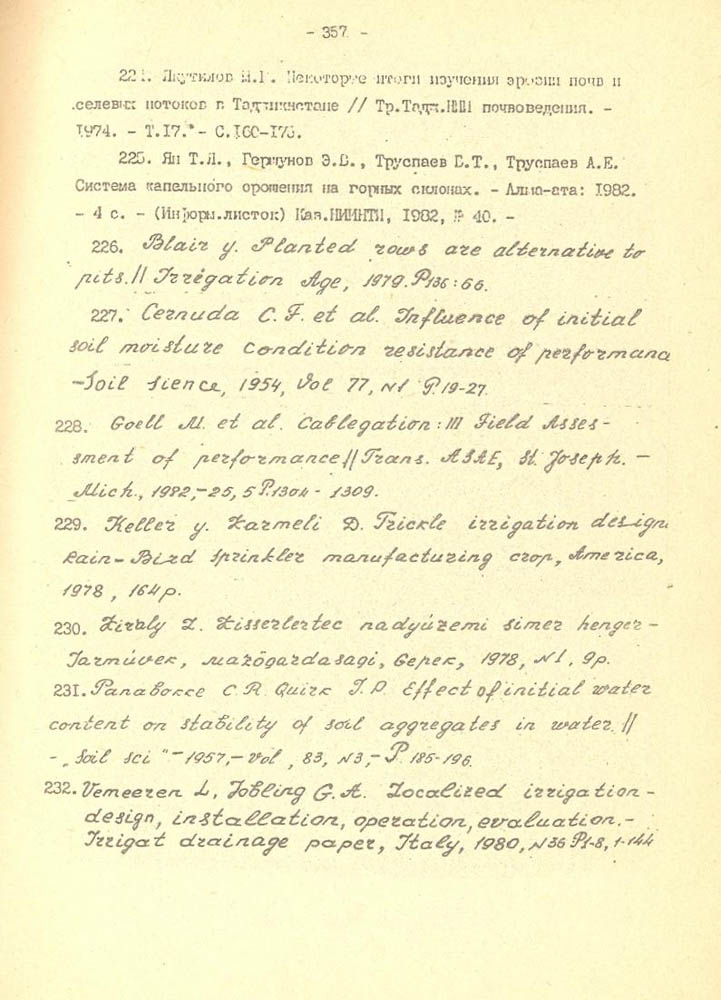 - 357 -
224. Якутилов М.Р. Некоторые итоги изучения эрозии почв и
селевых потоков в Таджикистане // Тр.Тадж.НИИ почвоведения. -
1974. - Т.17. - С.160-176.
225. Ян Т.Л., Гершунов Э.В., Труспаев Б.Т., Труспаев А.Е.
Система капельного орошения на горных склонах. - Алма-ата: 1982.
- 4 с. - (Информ.листок) Каз.НИИНТИ, 1982, № 40. -
226. Blair y. Planted rows are alternative to
pits.// Irrigation Age, 1979. P136:66.
227. Cernuda C.F. et al. Influence of initial
soil moisture condition resistance of performana
-Soil sience, 1954, Vol 77, N1 P.19-27.
228. Goell M. et al. Cablegation: III Field Asses-
sment of performance// Trans. ASAE, St. Joseph. -
Mich., 1982,-25, 5 P.1304 - 1309.
229. Keller y. Karmeli D. Trickle irrigation design
Rain-Bird sprinkler manufacturing crop, America,
1978, 164p.
230. Kiraly L. nadyúzemi simer henger-
Jarmúvek, Gepek, 1978, N1, 9p.
231. Panabokke C.R. Quirk J.P. Effect of initial water
content on stability of soil aggregates in water //
- „Soil sci" - 1957,- Vol, 83, N3,- P. 185-196.
232. Vemeeren L, Jobling G.A. Localized irrigation -
design, installation, operation, evaluation.-
Irrigat drainage paper, Italy, 1980, N36 P1-8, 1-144